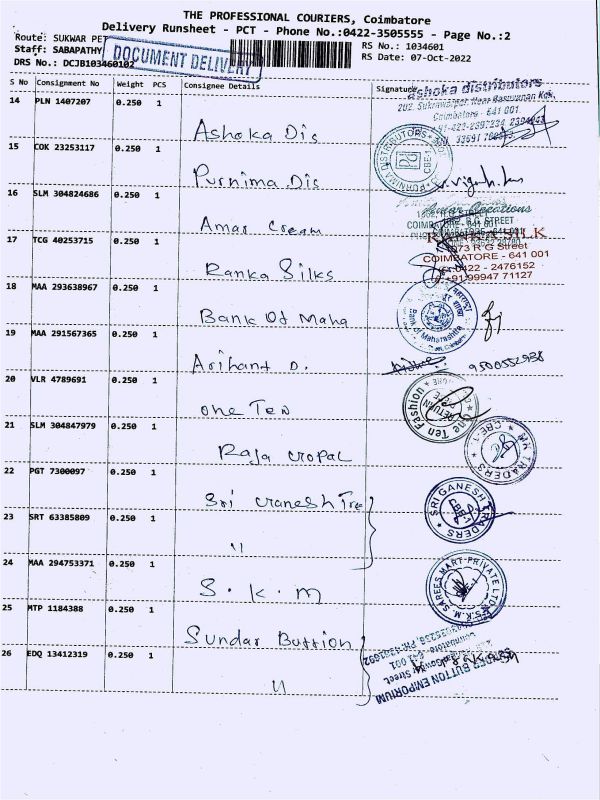 THE PROFESSIONAL COURIERS, Coimbatore
Delivery Runsheet - PCT - Phone No.:0422-3505555 - Page No.:2
Route: SUKWAR PET
RS No.: 1034601
Staff: SABAPATHY
DOCUMENT DELIVERY
RS Date: 07-Oct-2022
DRS No.: DCJB103460102
S No Consignment No Weight PCS Consignee Details Signature
14 PLN 1407207 0.250 1 Ashoka Dis
ashoka distributors
Coimbatore - 641 001
15 COK 23253117 0.250 1 Purnima Dis
PURNIMA DISTRIBUTORS
CBE-1
16 SLM 304824686 0.250 1 Amar Cream
17 TCG 40253715 0.250 1 Ranka Silks
SILK
R G Street
COIMBATORE - 641 001
0422 - 2476152
+91 99947 71127
18 MAA 293638967 0.250 1 Bank Of Maha
Bank of Maharashtra
19 MAA 291567365 0.250 1 Arihant D.
9500552938
20 VLR 4789691 0.250 1 One Ten
One Ten Fashion
21 SLM 304847979 0.250 1 Raja Gopal
TRADERS
CBE-1
22 PGT 7300097 0.250 1 Sri Ganesh Tre
SRI GANESH TRADERS
CBE-1
23 SRT 63385809 0.250 1 "
24 MAA 294753371 0.250 1 S. K. M
S.K.M. SAREES MART PRIVATE LTD
25 MTP 1184388 0.250 1 Sundar Buttion
26 EDQ 13412319 0.250 1 "
BUTTON EMPORIUM